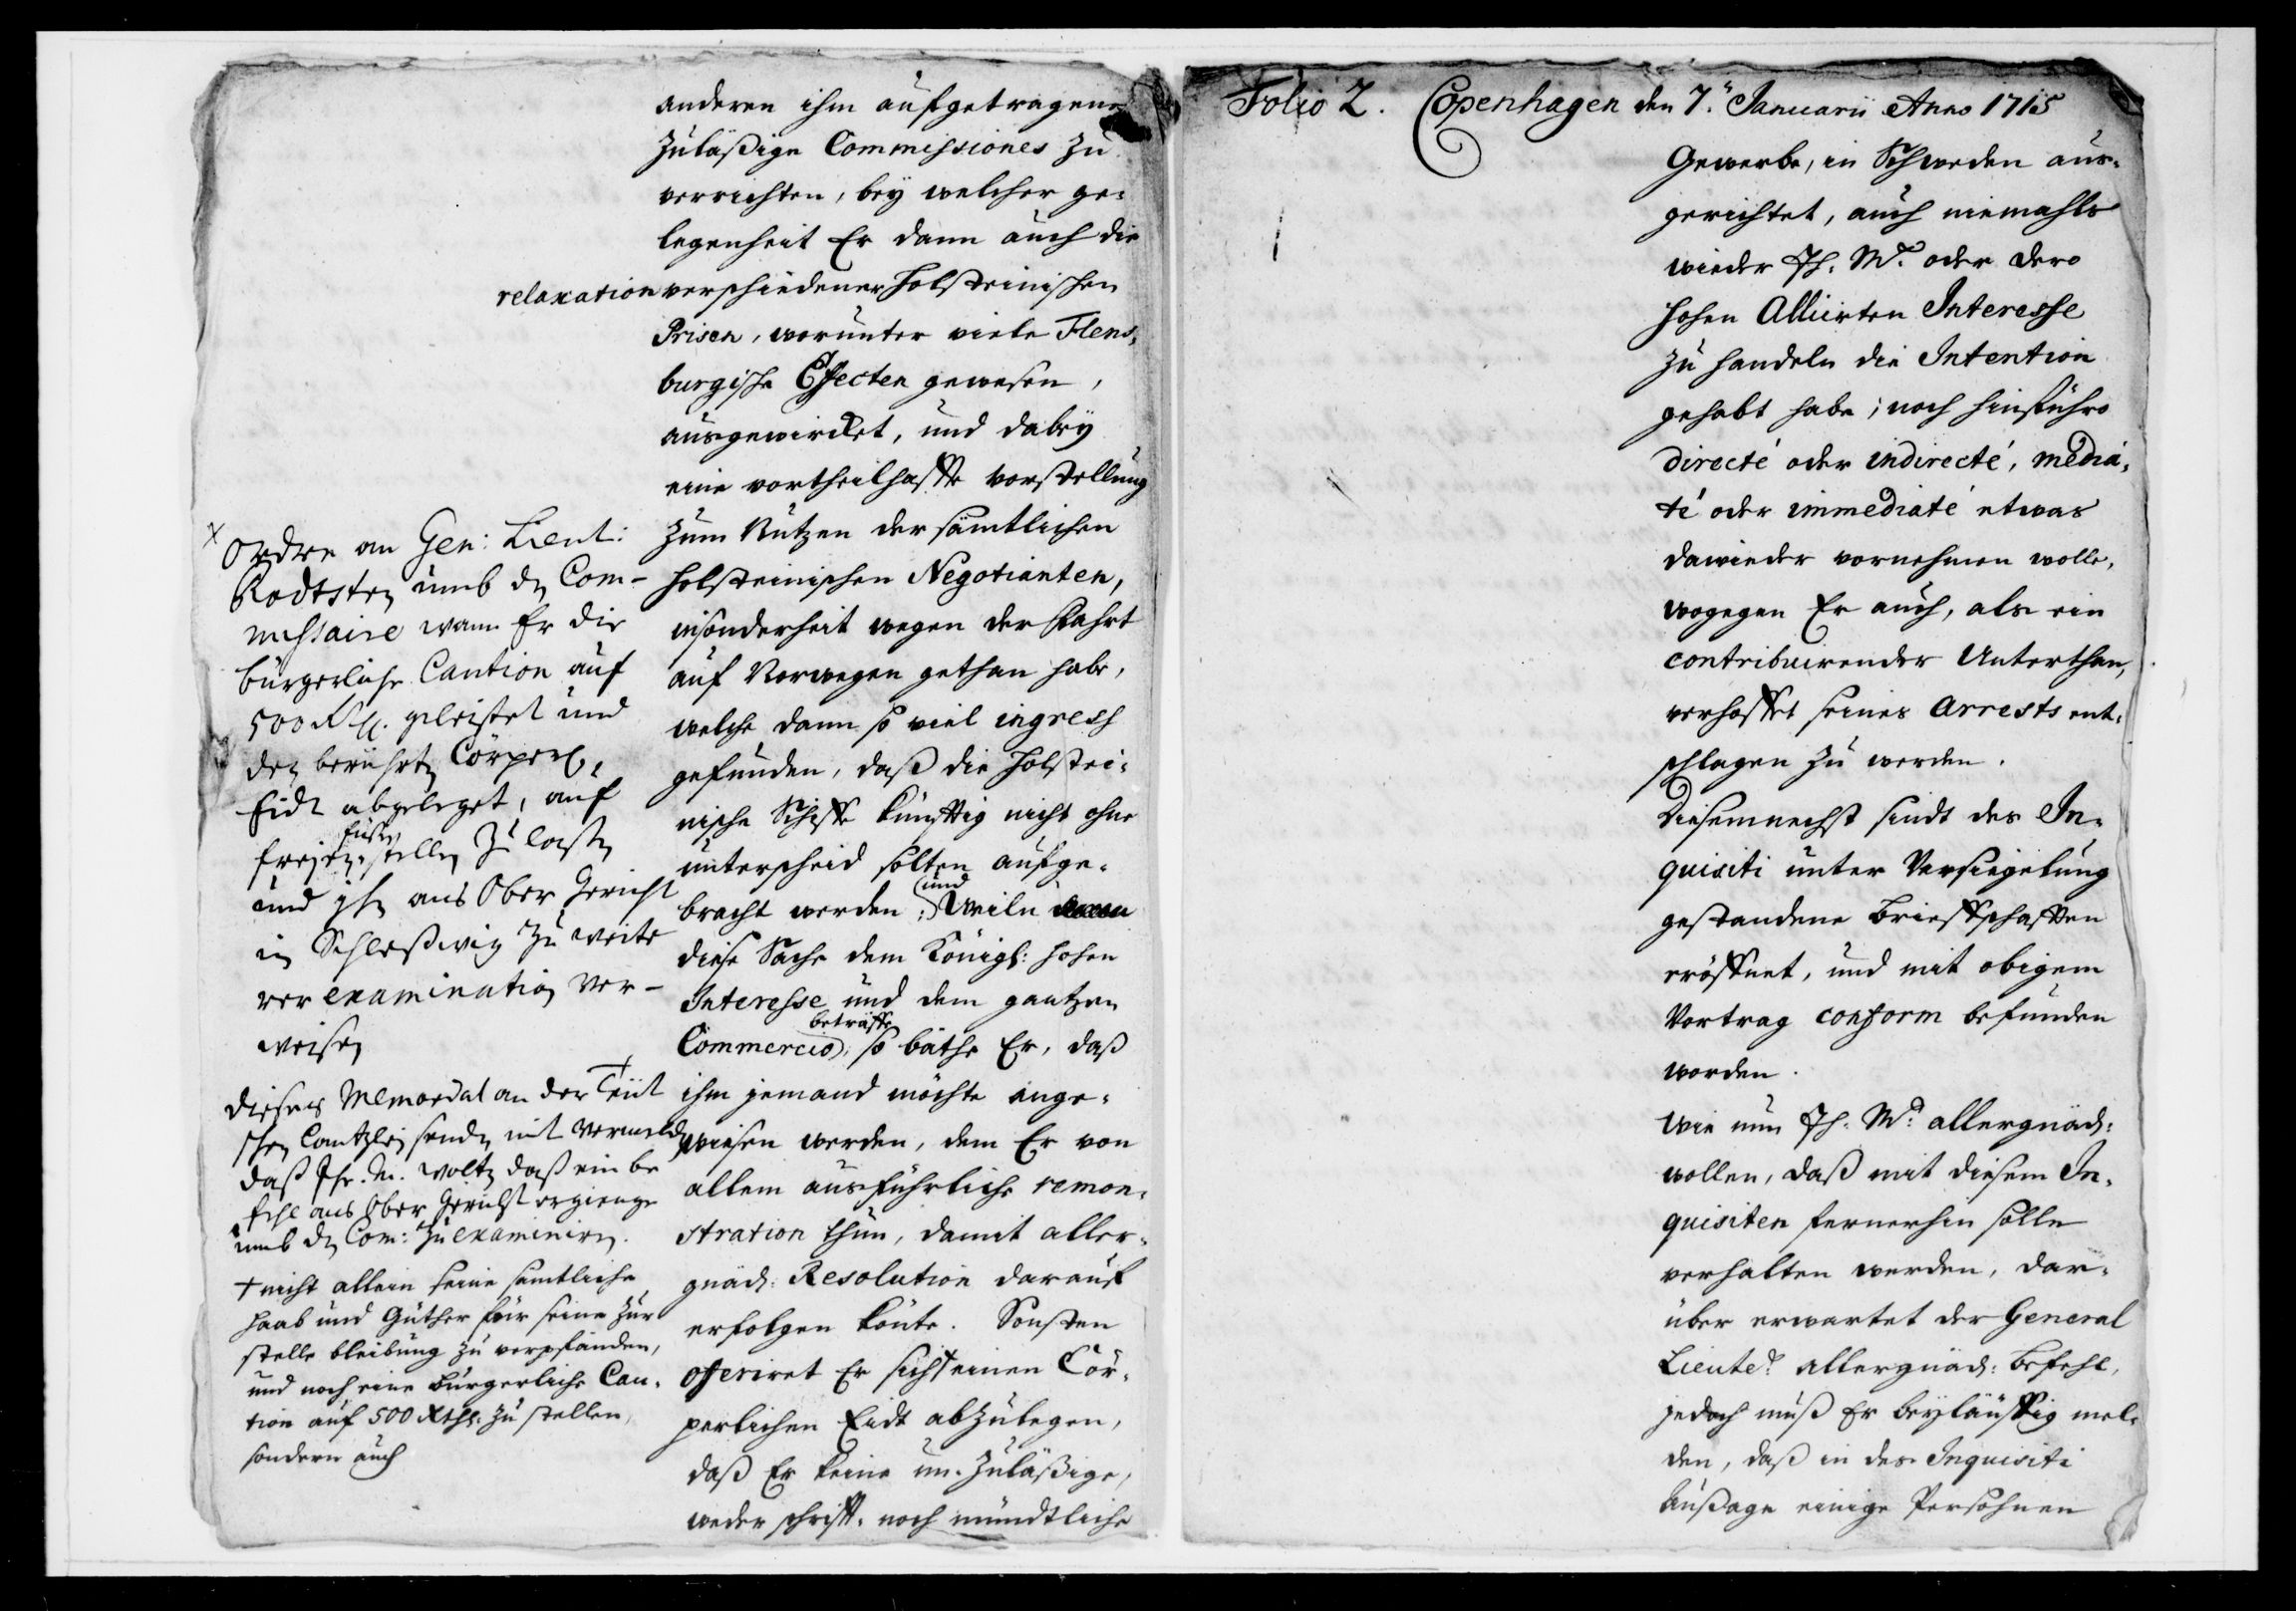 anderen ihm aufgetragene
zuläßige Commissiones zu
verrichten, beÿ welcher ge-
legenheit Er dann auch die
relaxation verschiedener Holsteinischen
Prisen, worunter viele Flens-
burgische Effecten gewesen,
ausgewircket, und dabeÿ
eine vortheilhaffte vorstellung
zum Nutzen der sämtlichen
Holsteinischen Negotianten,
insonderheit wegen der Fahrt
auf Norwegen gethan habe,
welche dann so viel ingress
gefunden, daß die Holstei-
nische Schiffe künfftig nicht ohne
unterscheid solten aufge-
bracht werden; und Weiln
diese Sache dem Königl: hohen
Interesse und dem gantzen
Commercio beträffe, so bäthe Er, daß
ihm jemand möchte ange-
wiesen werden, dem Er von
allem ausführliche remon-
stration thun, damit aller-
gnäd: Resolution darauf
erfolgen könte. Sonsten
offeriret Er sich + einen Cör-
perlichen Eidt abzulegen,
daß Er keine un-zuläßige,
weder schrifft- noch mündtliche
x
Ordre an Gen: Lieut:
Rodtsten umb den Com-
missaire wann Er die
bürgerliche Caution auf
500 Rthl. geleistet und
den berührten Cörperl.
Eidt abgeleget, auf
freyen füßen stellen zu laßen
und ihn ans Ober Gericht
in Schleßwig zu weite
rer examination ver-
weisen
Dieses Memorial an der Teüt
schen Cantzley senden mit vermelden
daß Ihr. M. wolten daß ein be
fehl ans Ober Gericht ergienge
umb den Com: zu examiniren.
+ nicht allein seine sämtliche
Haab und Güther für seine zur
stelle bleibung zu verpfänden,
und noch eine Bürgerliche Cau-
tion auf 500 Rthl. zu stellen,
sondern auch
Folio 2. Copenhagen den 7. Januarii Anno 1715
Gewerbe, in Schweden aus-
gerichtet, auch niemahls
wieder Ih. Mt. oder dero
hohen Alliirten Interesse
zu handeln die Intention
gehabt habe; noch hinführo
directé oder indirecté, media-
té oder immediaté etwas
dawieder vornehmen wolle,
wogegen Er auch, als ein
contribuirender Unterthan,
verhoffet seines Arrests ent-
schlagen zu werden.
Diesemnechst sindt des In-
quisiti unter Versiegelung
gestandene Brieffschafften
eröffnet, und mit obigem
Vortrag conform befunden
worden.
Wie nun Ih. Mt. allergnäd:
wollen, daß mit diesem In-
quisiten fernerhin solle
verhalten werden, dar-
über erwartet der General
Lieutet. allergnäd: Befehl,
jedoch muß Er beyläuffig mel-
den, daß in des Inquisiti
Außage einige Persohnen